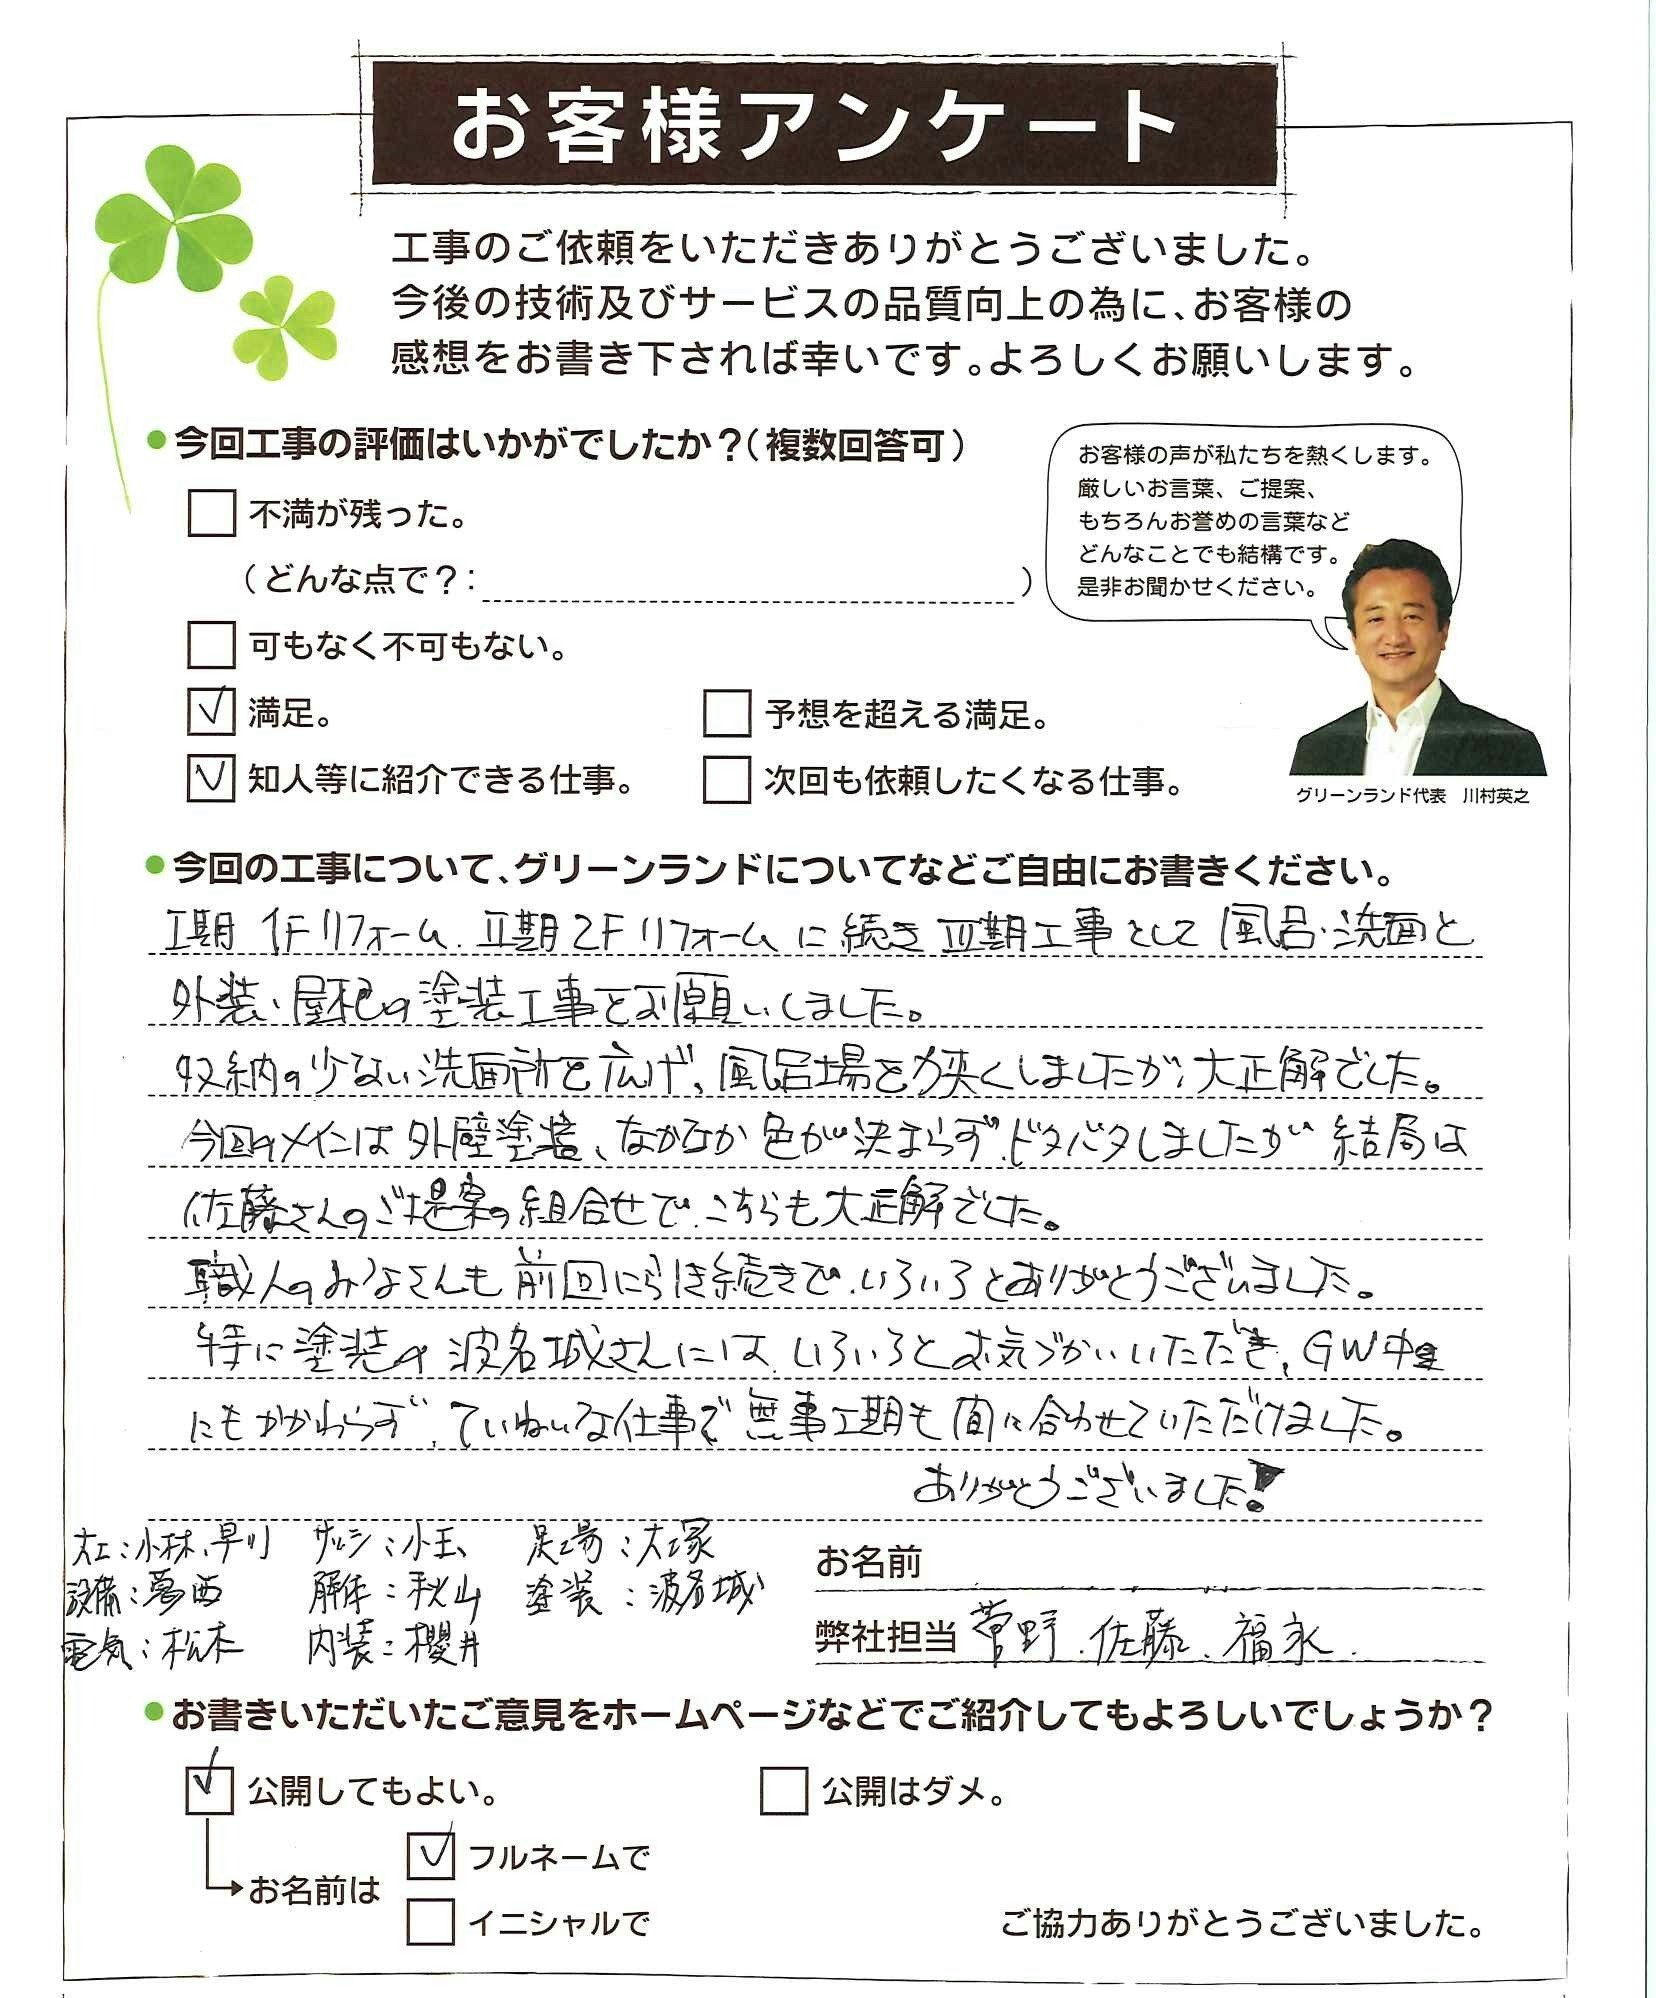 お客様アンケート
工事のご依頼をいただきありがとうございました。
今後の技術及びサービスの品質向上の為に、お客様の
感想をお書き下されば幸いです。よろしくお願いします。
●今回工事の評価はいかがでしたか?(複数回答可)
不満が残った。
(どんな点で?: )
可もなく不可もない。
満足。
予想を超える満足。
知人等に紹介できる仕事。
次回も依頼したくなる仕事。
お客様の声が私たちを熱くします。
厳しいお言葉、ご提案、
もちろんお誉めの言葉など
どんなことでも結構です。
是非お聞かせください。
グリーンランド代表 川村英之
●今回の工事について、グリーンランドについてなどご自由にお書きください。
Ⅰ期 1Fリフォーム、Ⅱ期2Fリフォームに続きⅢ期工事として風呂・洗面と
外装、屋根の塗装工事をお願いしました。
収納の少ない洗面所を広げ、風呂場を狭くしましたが、大正解でした。
今回のメインは外壁塗装、なかなか色が決まらず、ドタバタしましたが結局は
佐藤さんのご提案の組合せで、こちらも大正解でした。
職人のみなさんも前回に引き続きで、いろいろとありがとうございました。
特に塗装の波名城さんには、いろいろとお気づかいいただき、GW中
にもかかわらず、ていねいな仕事で無事工期も間に合わせていただけました。
ありがとうございました!
大工:小林、早川 サッシ:小玉 足場:大塚
設備:葛西 解体:秋山 塗装:波名城
電気:松本 内装:櫻井
お名前
弊社担当 菅野、佐藤、福永
●お書きいただいたご意見をホームページなどでご紹介してもよろしいでしょうか?
公開してもよい。
公開はダメ。
お名前は
フルネームで
イニシャルで
ご協力ありがとうございました。